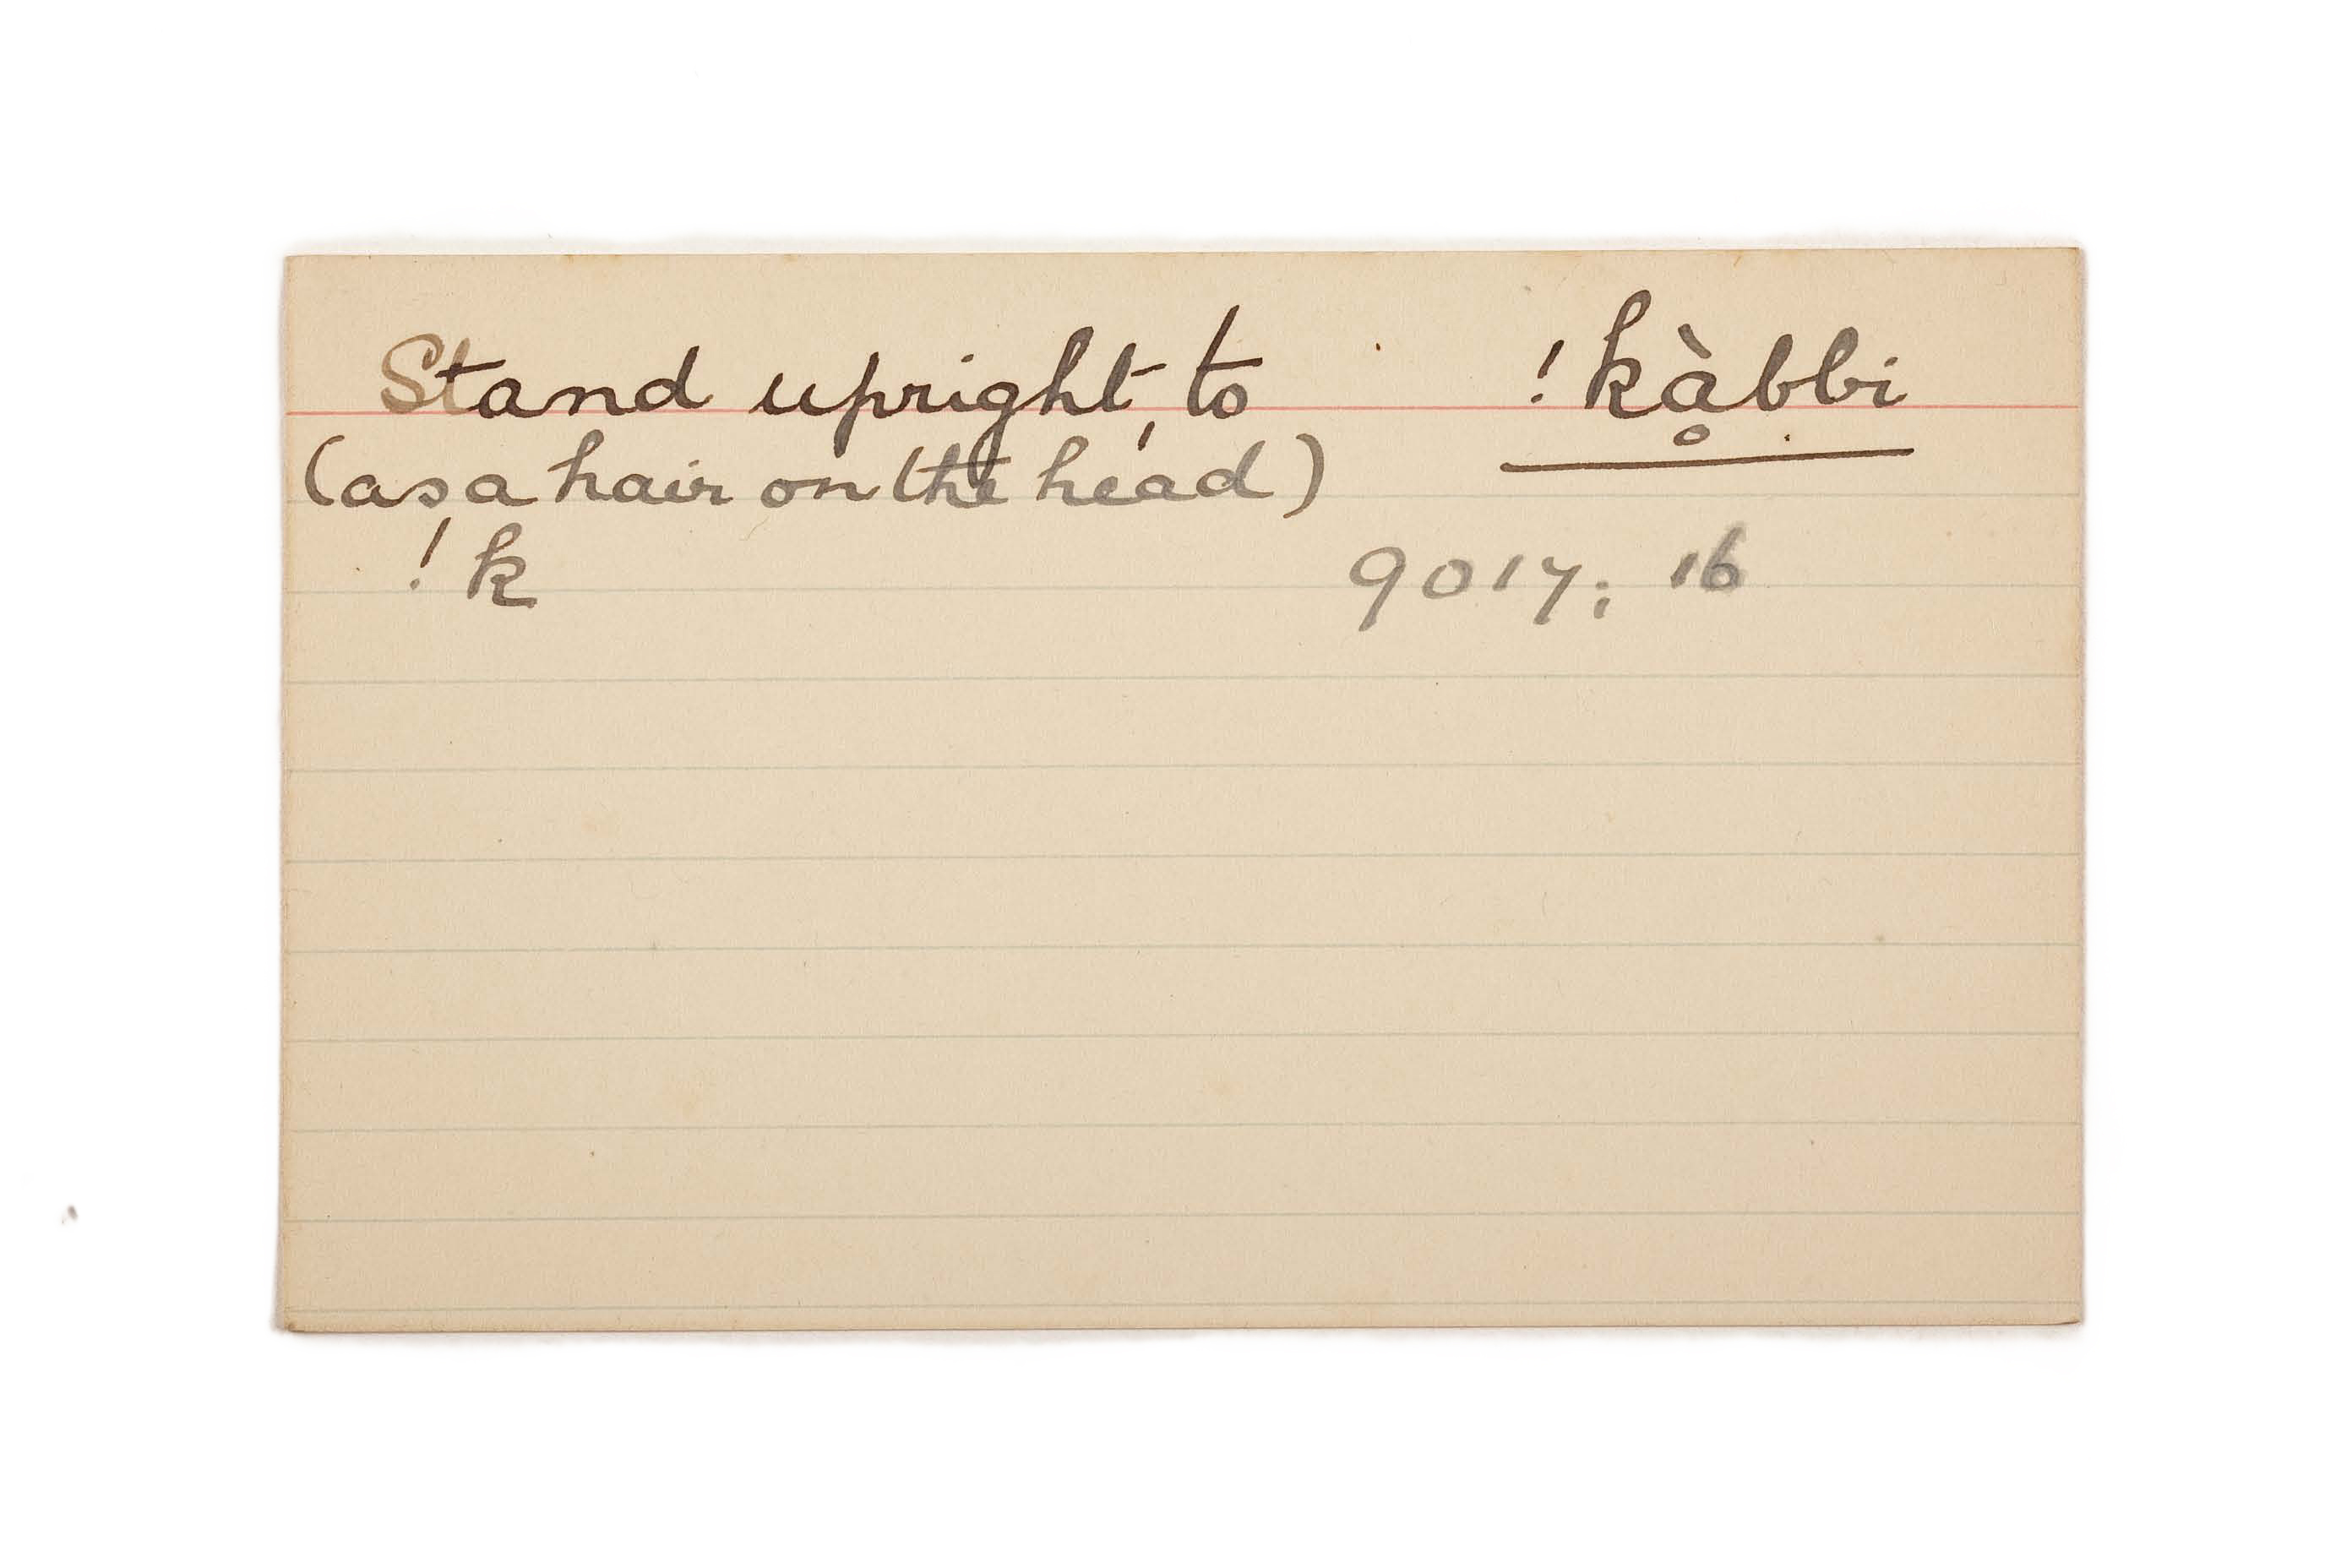 Stand upright, to !kḁ̀bbi
(as a hair on the head)
!k 9017; 16